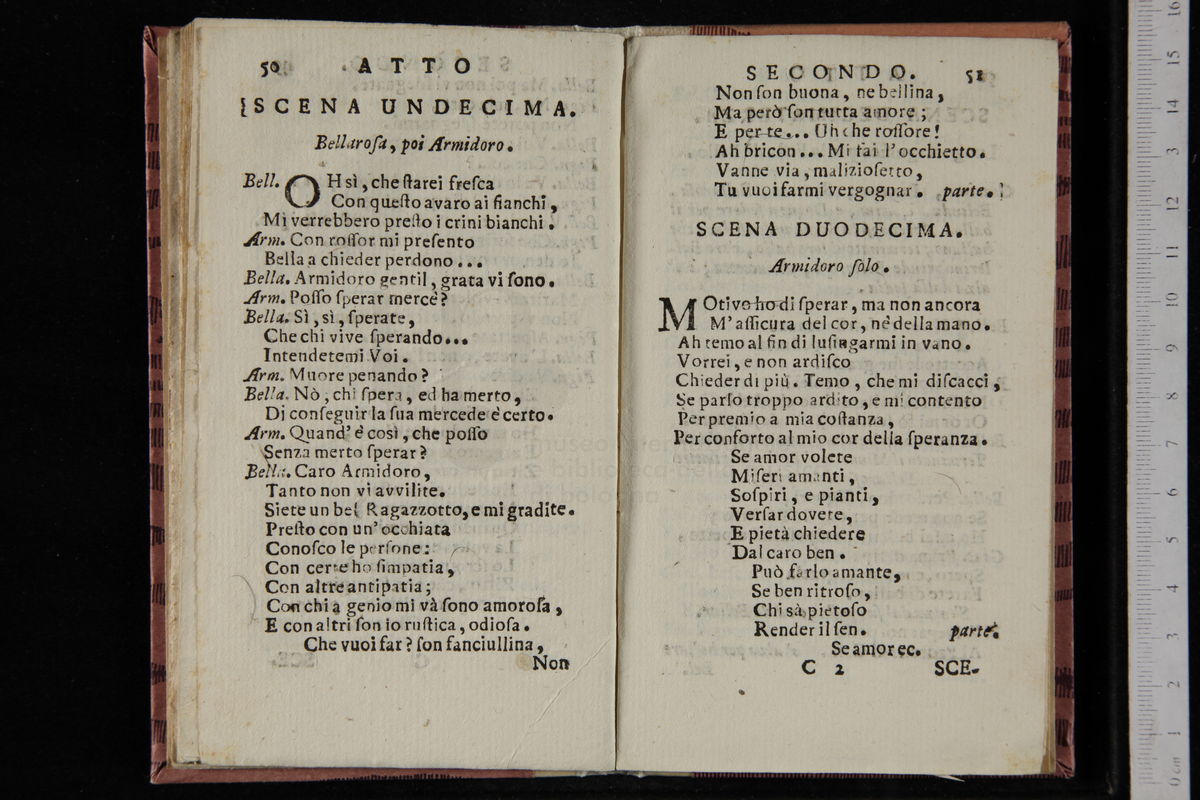 50 ATTO
SCENA UNDECIMA.
Bellaroſa, poi Armidoro.
Bell. OH sì, che ſtarei freſca
Con queſto avaro ai fianchi,
Mi verrebbero preſto i crini bianchi.
Arm. Con roſſor mi preſento
Bella a chieder perdono...
Bella. Armidoro gentil, grata vi ſono.
Arm. Poſſo ſperar mercè?
Bella. Sì, sì, ſperate,
Che chi vive ſperando...
Intendetemi Voi.
Arm. Muore penando?
Bella. Nò, chi ſpera, ed ha merto,
Di conſeguir la ſua mercede è certo.
Arm. Quand' è così, che poſſo
Senza merto ſperar?
Bella. Caro Armidoro,
Tanto non vi avvilite.
Siete un bel Ragazzotto, e mi gradite.
Preſto con un' occhiata
Conoſco le perſone:
Con certe ho ſimpatia,
Con altre antipatia;
Con chi a genio mi và ſono amoroſa,
E con altri ſon io ruſtica, odioſa.
Che vuoi far? ſon fanciullina,
Non
SECONDO. 51
Non ſon buona, ne bellina,
Ma però ſon tutta amore;
E per te... Uh che roſſore!
Ah bricon... Mi fai l'occhietto.
Vanne via, malizioſetto,
Tu vuoi farmi vergognar. parte.
SCENA DUODECIMA.
Armidoro ſolo.
MOtivo ho di ſperar, ma non ancora
M' aſſicura del cor, nè della mano.
Ah temo al fin di luſingarmi in vano.
Vorrei, e non ardiſco
Chieder di più. Temo, che mi diſcacci,
Se parlo troppo ardito, e mi contento
Per premio a mia coſtanza,
Per conforto al mio cor della ſperanza.
Se amor volete
Miſeri amanti,
Soſpiri, e pianti,
Verſar dovete,
E pietà chiedere
Dal caro ben.
Può farlo amante,
Se ben ritroſo,
Chi sà pietoſo
Render il ſen. parte.
Se amor ec.
C 2 SCE-